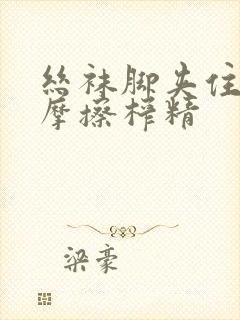 丝袜脚夹住
摩擦榨精
梁豪